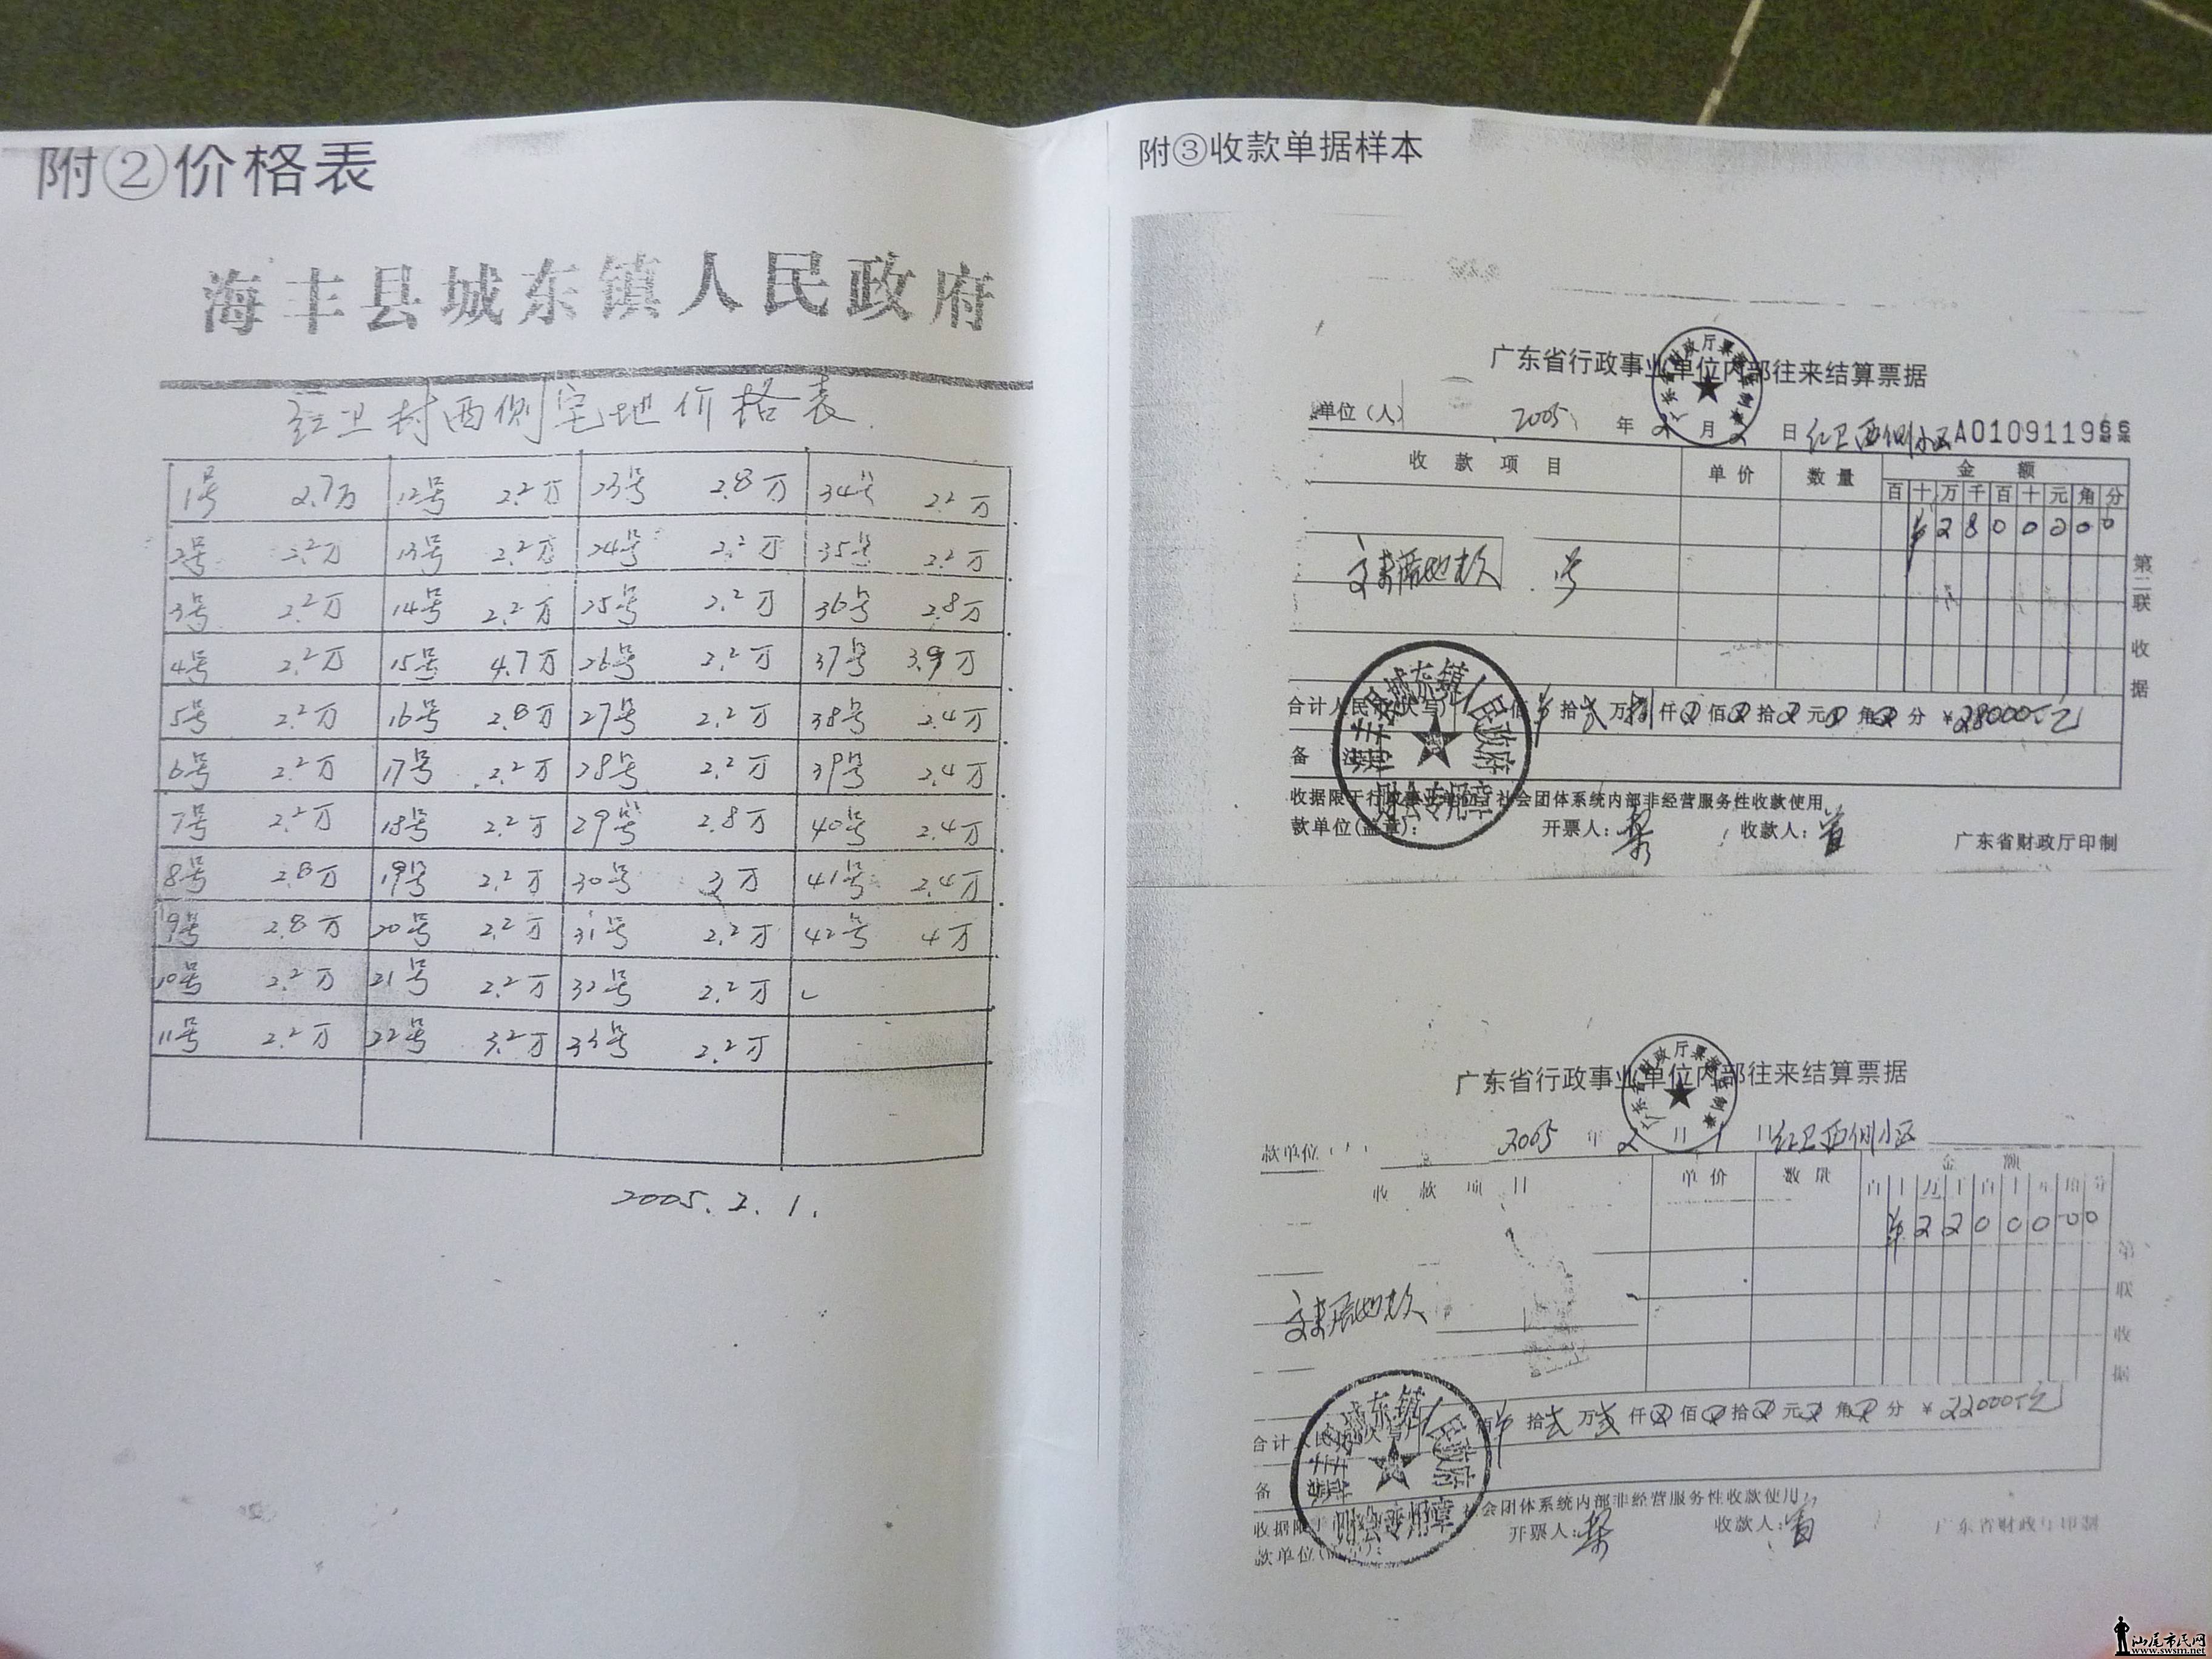 附②价格表
海丰县城东镇人民政府
红卫村西侧宅地价格表
1号 2.7万 12号 2.2万 23号 2.8万 34号 2.2万
2号 2.2万 13号 2.2万 24号 2.2万 35号 2.2万
3号 2.2万 14号 2.2万 25号 2.2万 36号 2.8万
4号 2.2万 15号 4.7万 26号 2.2万 37号 3.9万
5号 2.2万 16号 2.8万 27号 2.2万 38号 2.4万
6号 2.2万 17号 2.2万 28号 2.2万 39号 2.4万
7号 2.2万 18号 2.2万 29号 2.8万 40号 2.4万
8号 2.8万 19号 2.2万 30号 3万 41号 2.4万
9号 2.8万 20号 2.2万 31号 2.2万 42号 4万
10号 2.2万 21号 2.2万 32号 2.2万
11号 2.2万 22号 3.2万 33号 2.2万
2005.2.1.
附③收款单据样本
广东省行政事业单位内部往来结算票据
单位（人） 2005 年 2 月 日 红卫西侧小区 A01091196
收款项目 单价 数量 金额
百 十 万 千 百 十 元 角 分
¥ 2 8 0 0 0 0 0
交来宅地款 号
第二联 收据
合计人民币 拾 万 仟 佰 拾 元 角 分 ¥28000元
备注
海丰县城东镇人民政府
财会专用章
收据限于行政事业单位、社会团体系统内部非经营服务性收款使用
款单位(盖章): 开票人: 收款人: 广东省财政厅印制
广东省行政事业单位内部往来结算票据
款单位 2005 年 2 月 1 日 红卫西侧小区
收款项目 单价 数量 金额
¥ 2 2 0 0 0 0 0
交来宅地款
第 联 收据
合计人民币 佰 拾 贰 万 贰 仟 佰 拾 元 角 分 ¥22000元
备
海丰县城东镇人民政府
财会专用章
收据限于 社会团体系统内部非经营服务性收款使用
款单位 开票人: 收款人: 广东省财政厅印制
汕尾市民网
www.swsm.net